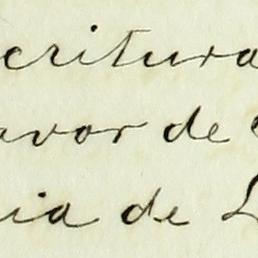 critura
avor de
ia de L